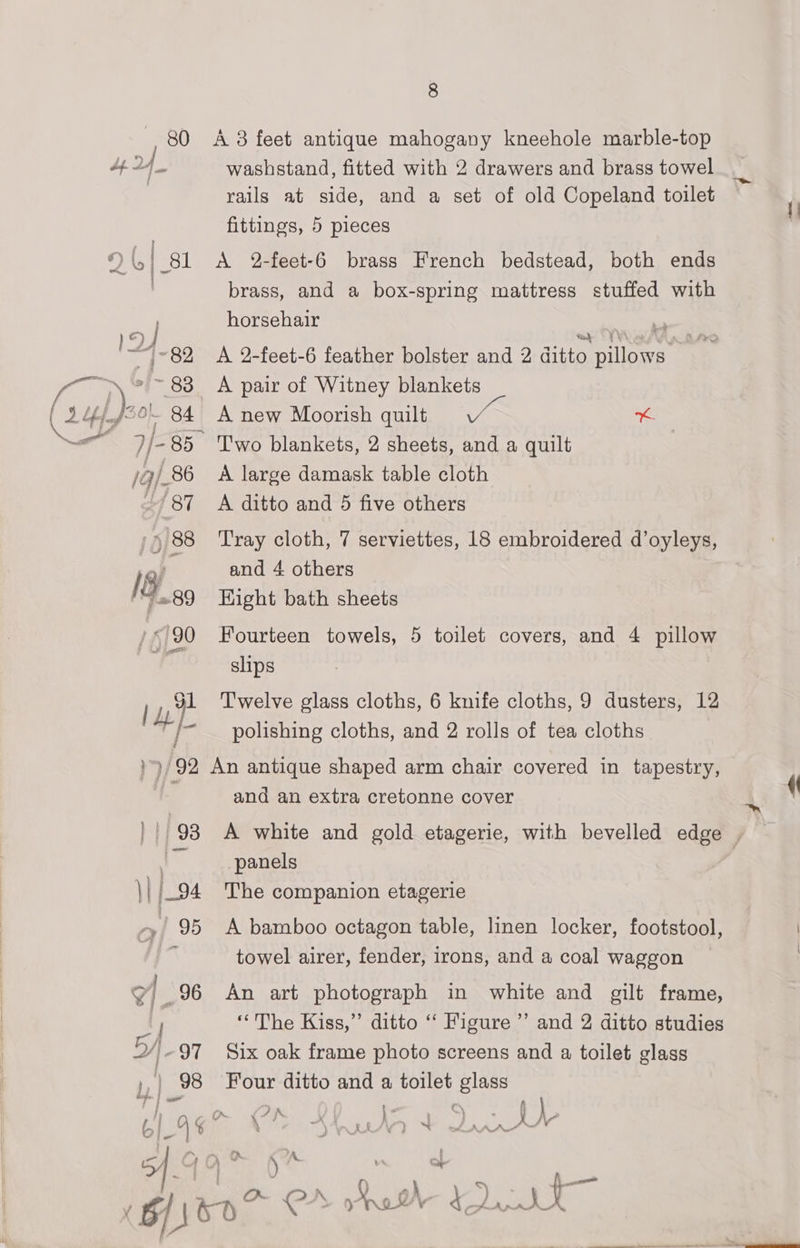 8
80 A 3 feet antique mahogany kneehole marble-top
washstand, fitted with 2 drawers and brass towel
rails at side, and a set of old Copeland toilet
fittings, 5 pieces
81 A 2-feet-6 brass French bedstead, both ends
brass, and a box-spring mattress stuffed with
horsehair
82 A 2-feet-6 feather bolster and 2 ditto pillows
83 A pair of Witney blankets
84 A new Moorish quilt
7/- 85 Two blankets, 2 sheets, and a quilt
19/- 86 A large damask table cloth
87 A ditto and 5 five others
88 Tray cloth, 7 serviettes, 18 embroidered d'oyleys,
and 4 others
89 Eight bath sheets
90 Fourteen towels, 5 toilet covers, and 4 pillow
slips
91 Twelve glass cloths, 6 knife cloths, 9 dusters, 12
14/- polishing cloths, and 2 rolls of tea cloths
92 An antique shaped arm chair covered in tapestry,
and an extra cretonne cover
93 A white and gold etagerie, with bevelled edge
panels
94 The companion etagerie
95 A bamboo octagon table, linen locker, footstool,
towel airer, fender, irons, and a coal waggon
96 An art photograph in white and gilt frame,
“The Kiss,” ditto “Figure” and 2 ditto studies
97 Six oak frame photo screens and a toilet glass
98 Four ditto and a toilet glass